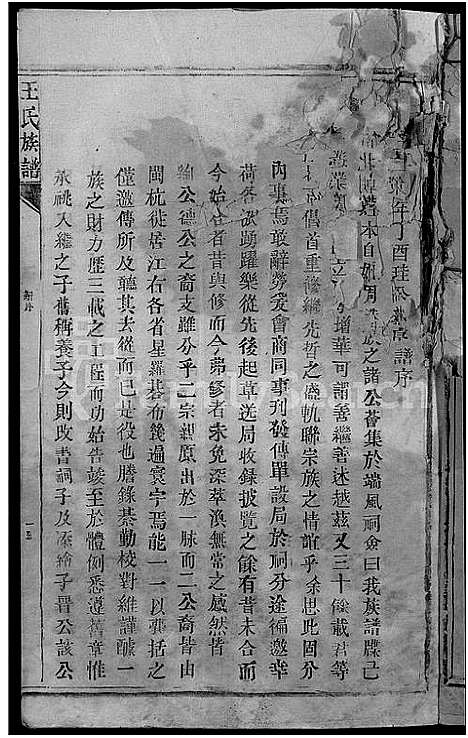 年丁酉
族之諸公薈集於瑞風祠僉曰我族譜牒己
增華可謂善繼善述越茲又三十餘載君等
倡首重修繼先哲之盛軌聯宗族之情誼乎余思此固分
內事焉敢辭勞爰會商同事刊發傳單設局於祠分途徧邀幸
荷各派踴躍樂從先後起草送局收錄披覽之餘有昔未合而
今始合者昔與修而今弗修者未免深萃渙無常之感然皆
公德公之裔支雖分乎二宗親原出於一脉而二公裔皆由
閩杭徙居江右各省星羅碁布幾遍寰宇焉能一一以龔括之
僅邀傳所及聽其去從而已是役也謄錄綦勤校對維謹醵一
族之財力歷三載之工程而功始告竣至於體例悉遵舊章惟
承祧入繼之子舊稱養子今則改書祠子及 子晉公該公
王氏族譜
序
一